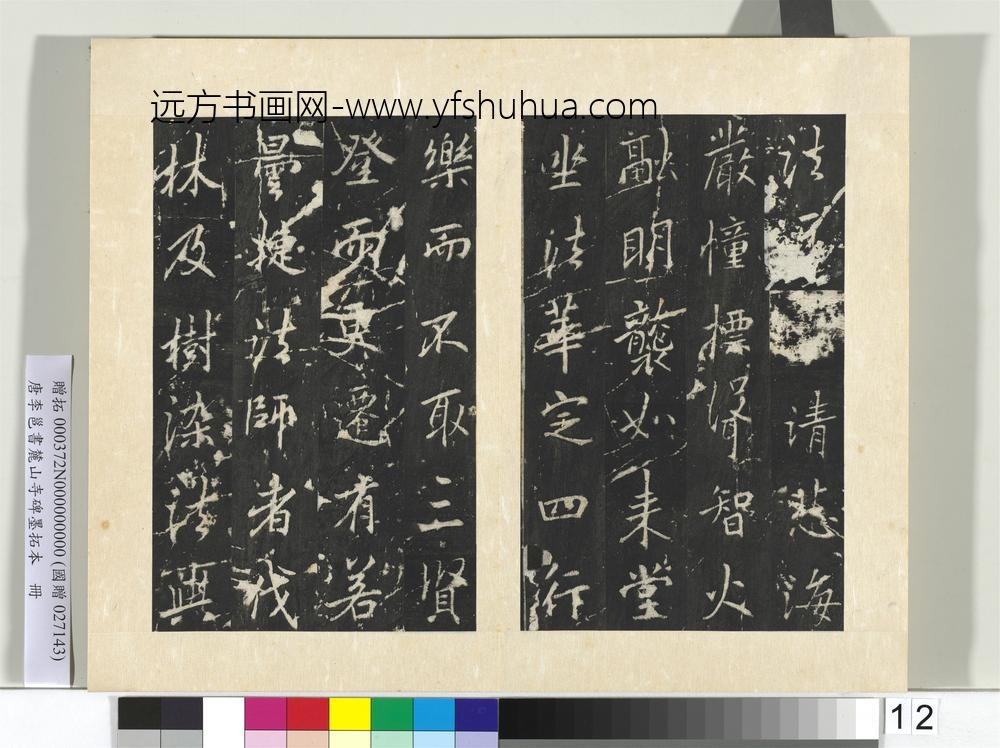 远方书画网-www.yfshuhua.com
法 請悲海
嚴幢摽 智火
融明襲如来堂
坐法華定四行
樂而不取三賢
登而更遷有若
曇捷法師者戒
林及樹染法與
贈拓 000372N000000000 (國贈 027143)
唐李邕書麓山寺碑墨拓本 冊
12